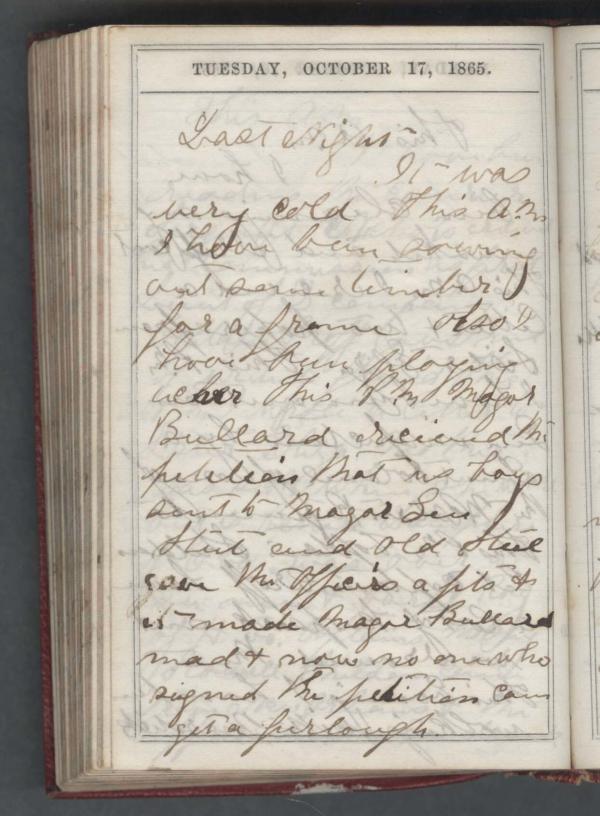 TUESDAY, OCTOBER 17, 1865.
Last Night
It was
very cold This A.M.
I have been sawing
out some timber
for a frame also I
have been playing
This P M Magor
Bullard recieved the
petition that us boys
sent to Magor Gen
and Old
gave the Officers a fits &
it made Magor Bullard
mad & now no one who
signed the petition can
get a furlough.